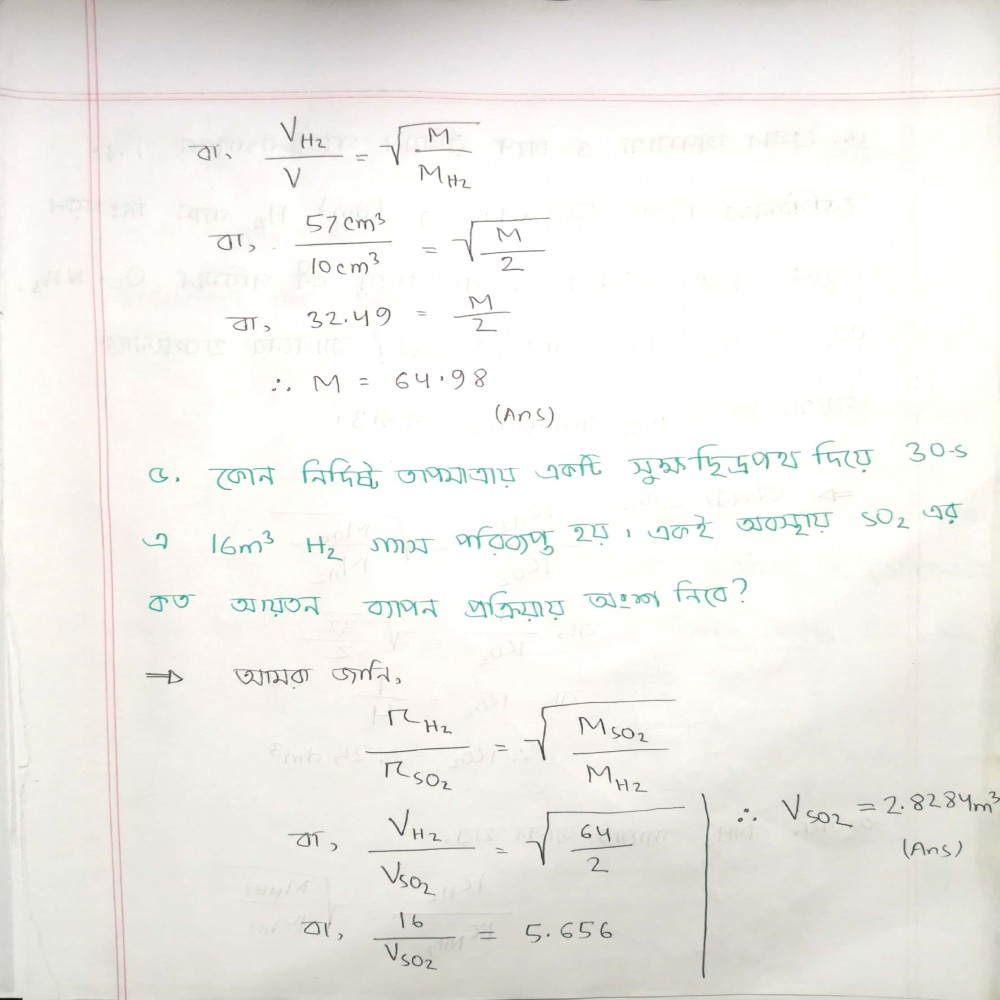 বা, V_H2 / V = √(M / M_H2)
বা, 57cm³ / 10cm³ = √(M / 2)
বা, 32.49 = M / 2
∴ M = 64.98
(Ans)
৫. কোন নির্দিষ্ট তাপমাত্রায় একটি সুক্ষ ছিদ্রপথ দিয়ে 30s
এ 16m³ H₂ গ্যাস পরিব্যপ্ত হয়। একই অবস্থায় SO₂ এর
কত আয়তন ব্যাপন প্রক্রিয়ায় অংশ নিবে?
⇒ আমরা জানি,
r_H2 / r_SO2 = √(M_SO2 / M_H2)
বা, V_H2 / V_SO2 = √(64 / 2)
বা, 16 / V_SO2 = 5.656
∴ V_SO2 = 2.8284m³
(Ans)